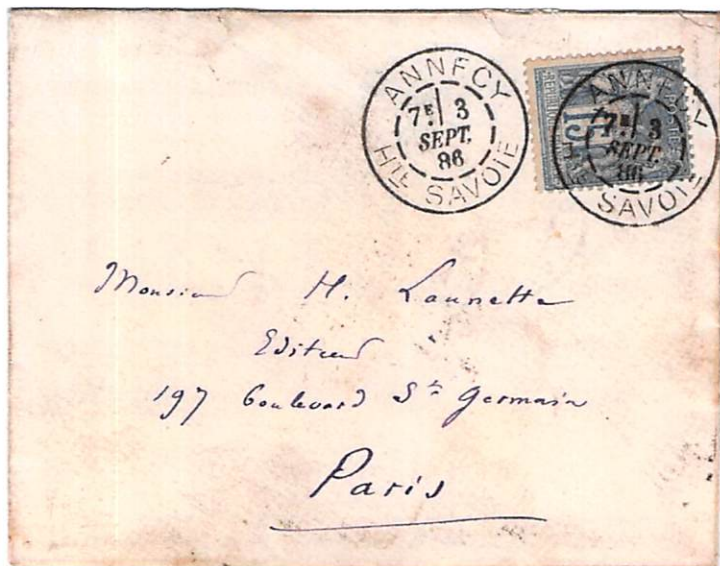 ANNECY
7E 3
SEPT.
86
HTE SAVOIE
ANNECY
7E 3
SEPT.
86
HTE SAVOIE
15
Monsieur H. Launette
Editeur
197 boulevard St Germain
Paris